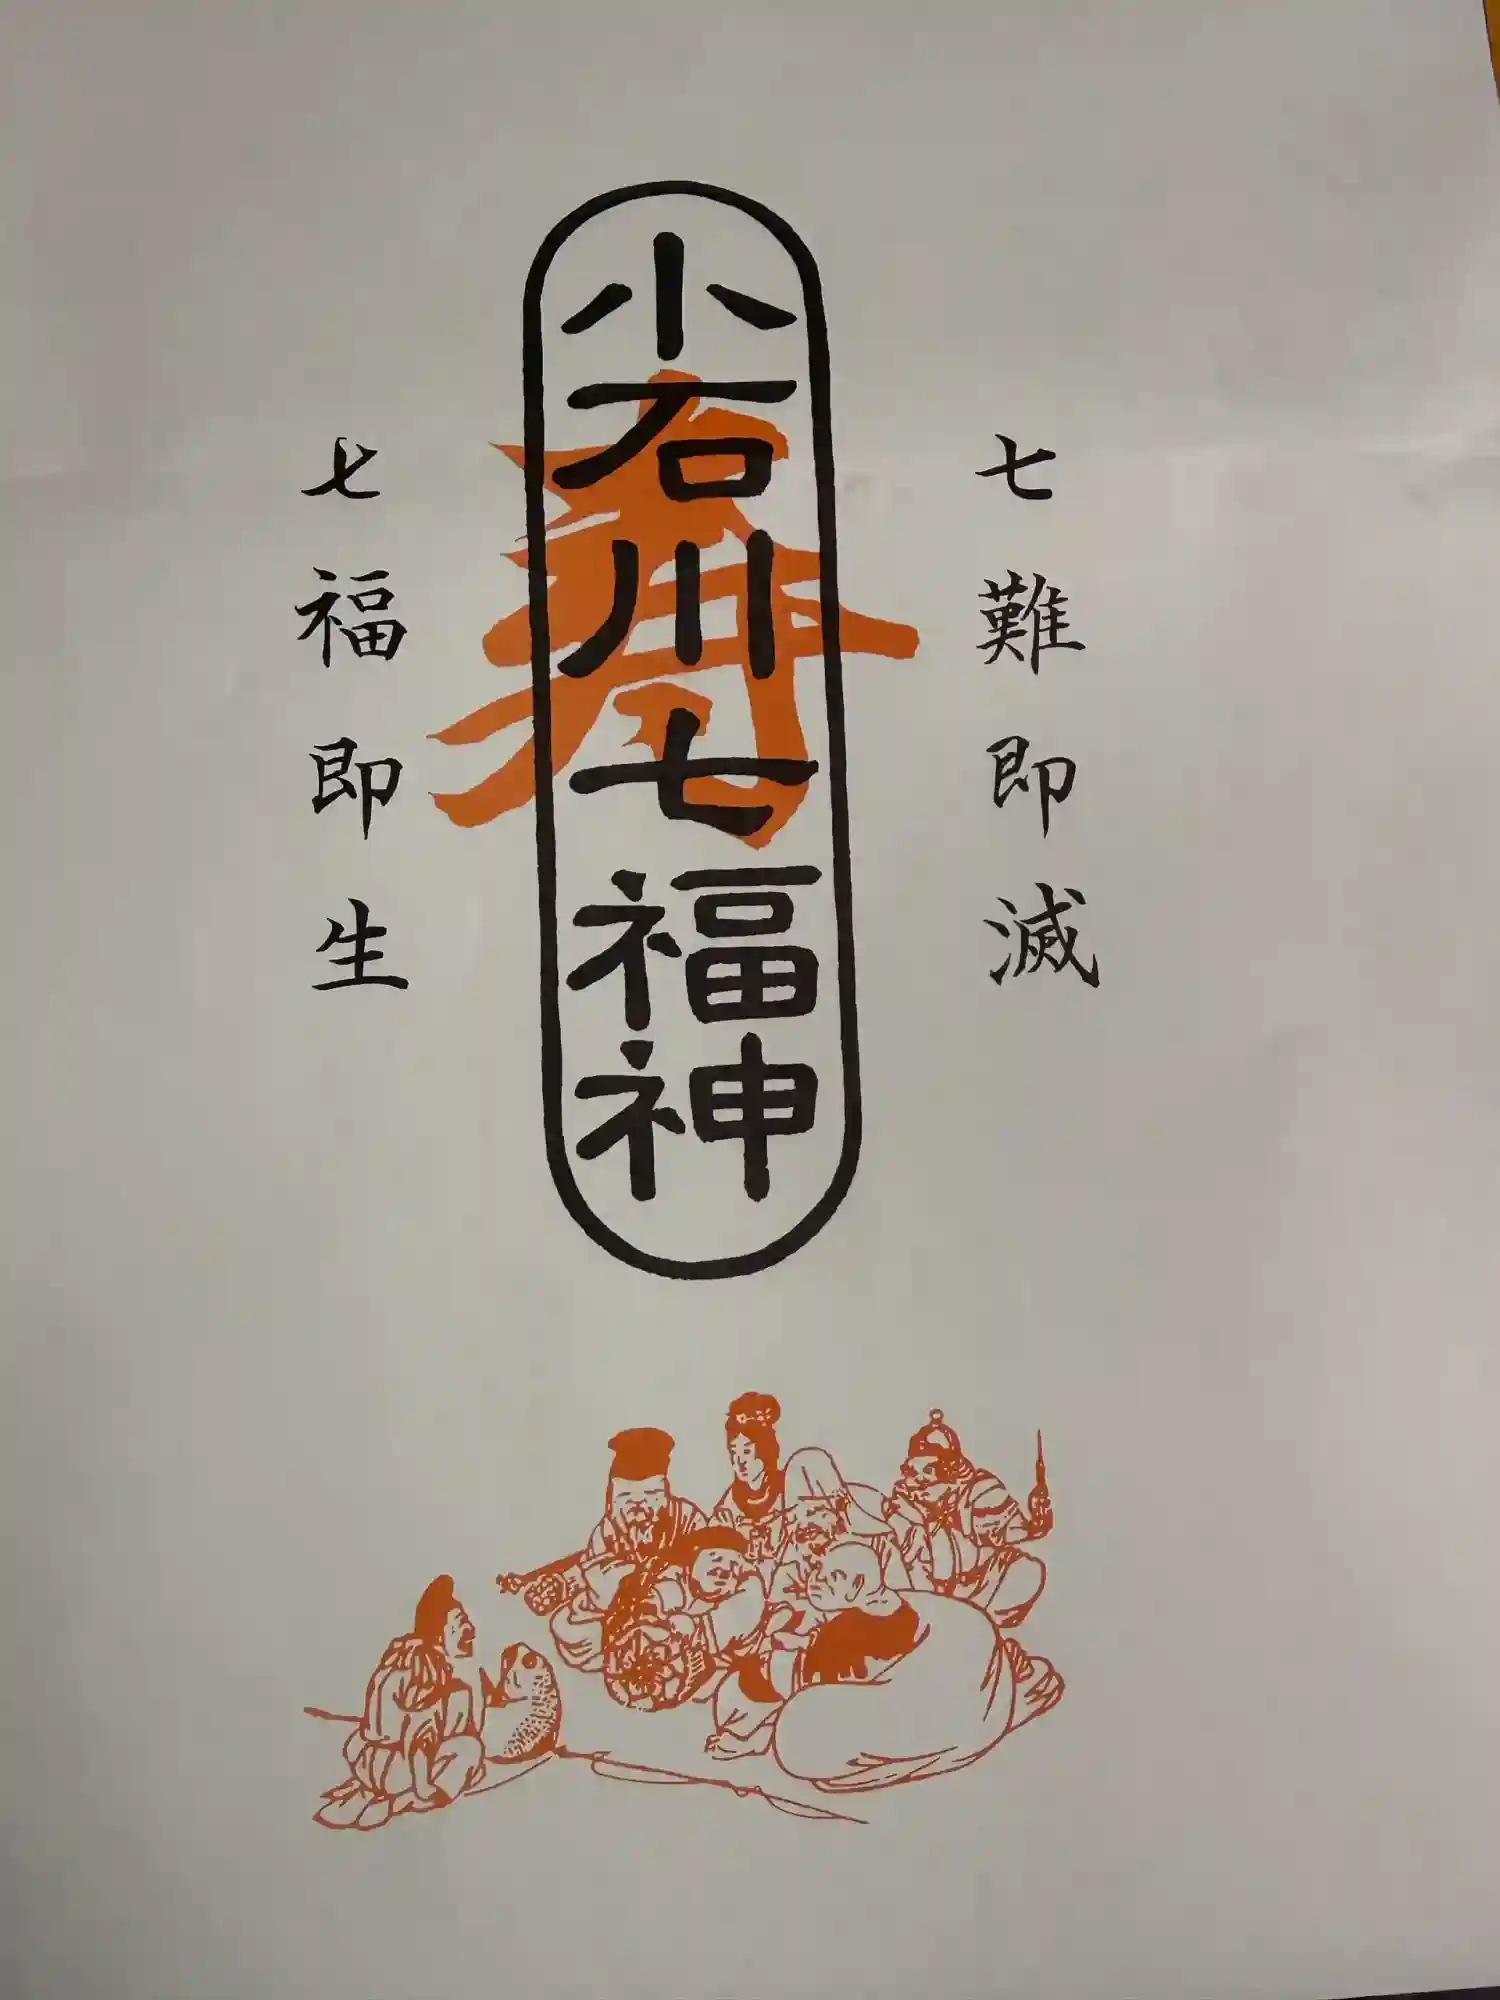 七難即滅
小石川七福神
七福即生
寿